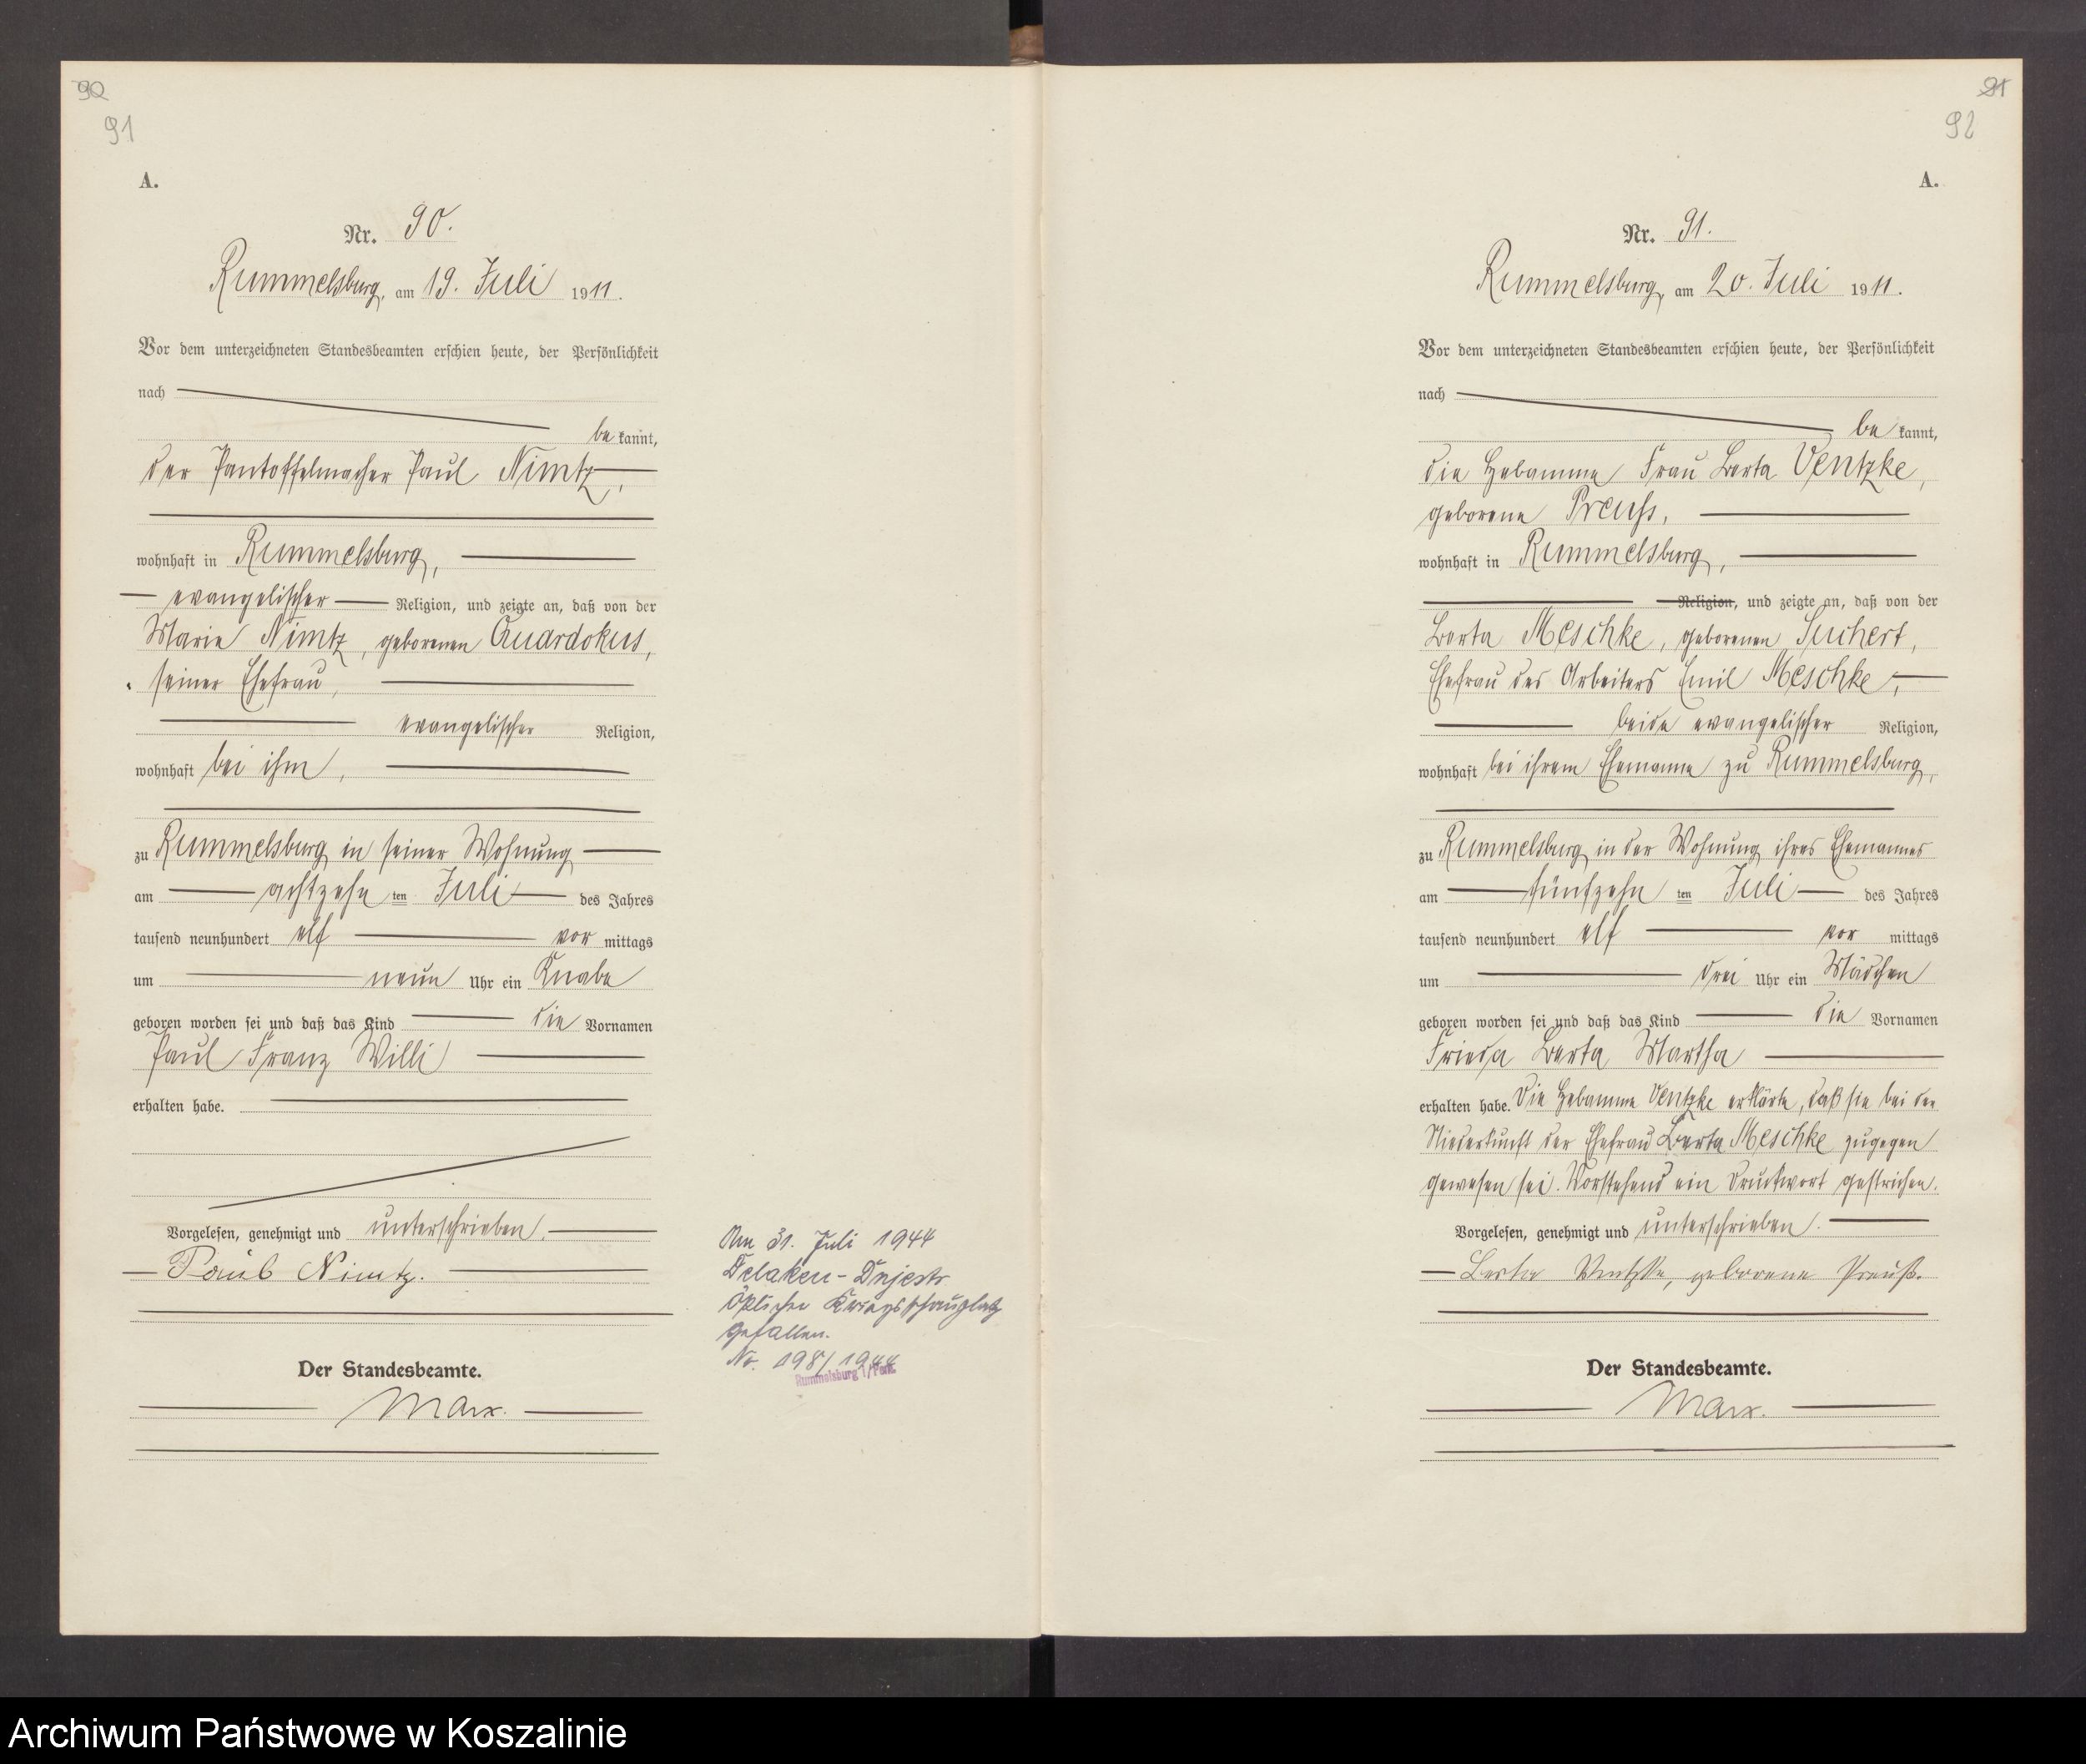 90
91
A.
Nr. 90.
Rummelsburg, am 19. Juli 1911.
Vor dem unterzeichneten Standesbeamten erschien heute, der Persönlichkeit
nach
be kannt,
der Pantoffelmacher Paul Nimtz,
wohnhaft in Rummelsburg,
evangelischer Religion, und zeigte an, daß von der
Marie Nimtz, geborenen Quardokus,
seiner Ehefrau,
evangelischer Religion,
wohnhaft bei ihm,
zu Rummelsburg in seiner Wohnung
am achtzehn ten Juli des Jahres
tausend neunhundert elf vor mittags
um neun Uhr ein Knabe
geboren worden sei und daß das Kind die Vornamen
Paul Franz Willi
erhalten habe.
Vorgelesen, genehmigt und unterschrieben.
Paul Nimtz.
Der Standesbeamte.
Marx.
Am 31. Juli 1944
Delaken - Dnjestr
Östlicher Kriegsschauplatz
gefallen.
Nr. 198/1944
Rummelsburg i/Pom.
91
92
A.
Nr. 91.
Rummelsburg, am 20. Juli 1911.
Vor dem unterzeichneten Standesbeamten erschien heute, der Persönlichkeit
nach
be kannt,
die Hebamme Frau Berta Ventzke,
geborene Preuß,
wohnhaft in Rummelsburg,
Religion, und zeigte an, daß von der
Berta Meschke, geborenen Suchert,
Ehefrau des Arbeiters Emil Meschke,
beide evangelischer Religion,
wohnhaft bei ihrem Ehemanne zu Rummelsburg,
zu Rummelsburg in der Wohnung ihres Ehemannes
am fünfzehn ten Juli des Jahres
tausend neunhundert elf vor mittags
um drei Uhr ein Mädchen
geboren worden sei und daß das Kind die Vornamen
Frieda Berta Martha
erhalten habe. Die Hebamme Ventzke erklärte, daß sie bei der
Niederkunft der Ehefrau Berta Meschke zugegen
gewesen sei. Vorstehend ein Druckwort gestrichen.
Vorgelesen, genehmigt und unterschrieben.
Berta Ventzke, geborene Preuß.
Der Standesbeamte.
Marx.
Archiwum Państwowe w Koszalinie